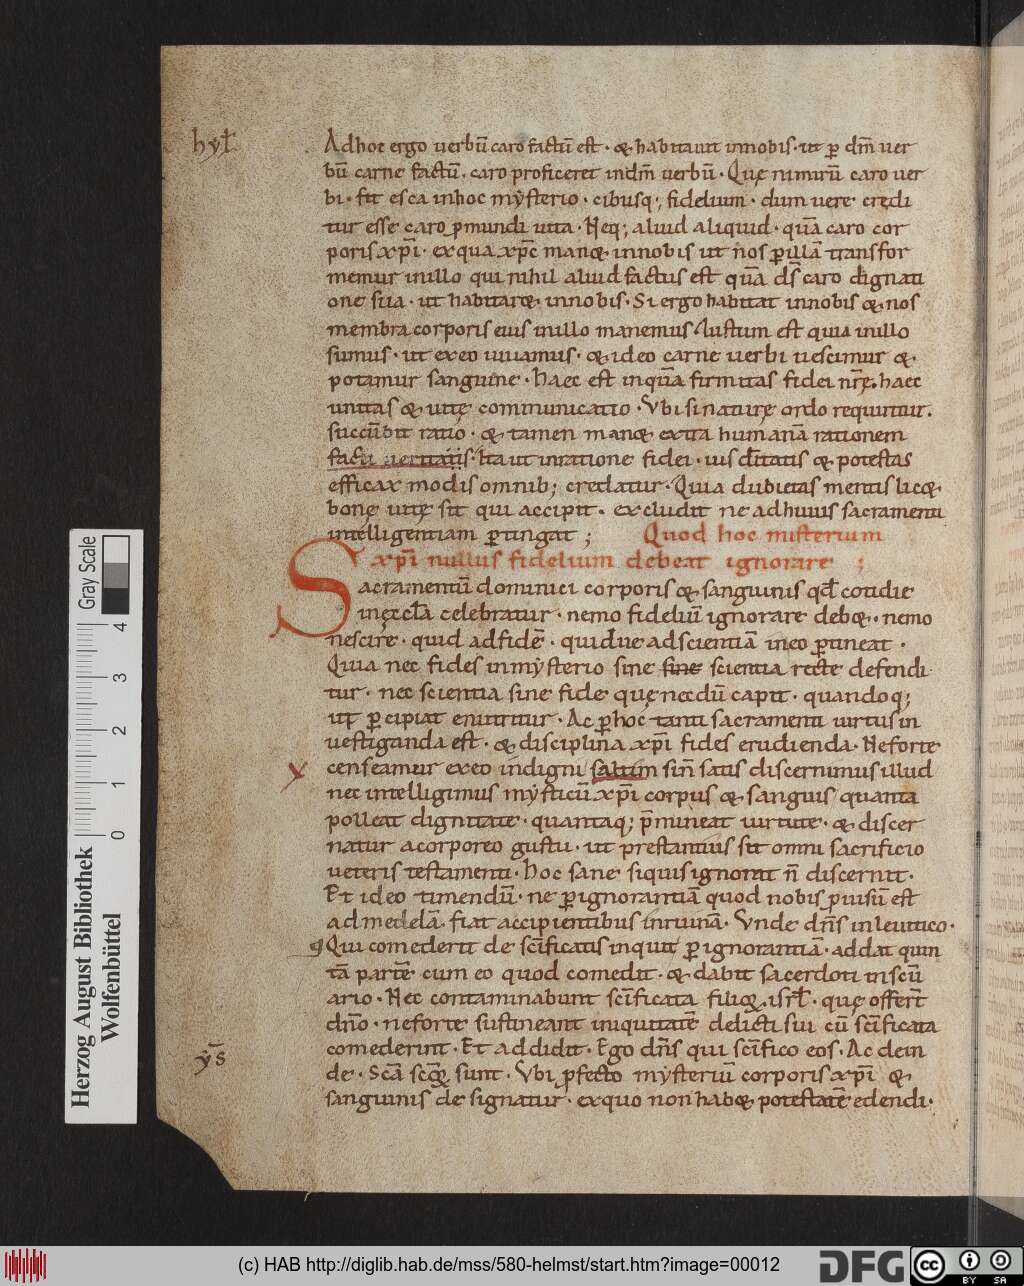 hyl̄
Adhoc ergo uerbū caro factū est · & habitauit innobis · ut p̱ dm̄ uer
bū carne factū · caro proficeret indm̄ uerbū · Quę nimirū caro uer
bi · fit esca inhoc mẏsterio · cibusq; fidelium · dum uere credi
tur esse caro ꝓmundi uita · Neq; aliud aliquid · quā caro cor
poris xp̄i · exqua xp̄c man& · innobis ut nos ꝑillā transfor
memur inillo qui nihil aliud factus est quā ds̄ caro dignati
one sua · ut habitar& · innobis · Si ergo habitat innobis & · nos
membra corporis eius inillo manemus · Iustum est quia inillo
sumus · ut exeo uiuamus · & ideo carne uerbi uescimur & ·
potamur sanguine · Haec est inquā firmitas fidei nr̄ę · haec
unitas & uitę communicatio · Vbi sinaturę ordo requiritur ·
succūbit ratio · & tamen man& extra humanā rationem
facti ueritatis · Ita ut inratione fidei · uis d̄itatis & potestas
efficax modis omnib; credatur · Quia dubietas mentis lic& ·
bonę uitę sit qui accipit · excludit ne adhuius sacramenti
intelligentiam ꝑtingat ; Quod hoc misterium
xp̄i nullus fidelium debeat ignorare ;
Sacramentū dominici corporis & sanguinis qd̄ cotidie
inęccl̄a celebratur · nemo fideliū ignorare deb& · nemo
nescire · quid adfidē · quidue adscientiā ineo ꝑtineat ·
Quia nec fides inmẏsterio sine sine scientia recte defendi
tur · nec scientia sine fide quę necdū capit · quandoq;
ut ꝑcipiat enutritur · Ac ꝑhoc tanti sacramenti uirtus in
uestiganda est · & disciplina xp̄i fides erudienda · Neforte
censeamur exeo indigni saltim sin̄ satis discernimus illud
nec intelligimus mẏsticū xp̄i corpus & sanguis quanta
polleat dignitate · quantaq; p̄mineat uirtute · & discer
natur acorporeo gustu · ut prestantius sit omni sacrificio
ueteris testamenti · Hoc sane siquis ignorat n̄ discernit ·
Et ideo timendū · ne ꝑignorantiā quod nobis ꝓuisū est
admedelā · fiat accipientibus inruinā · Vnde dn̄s inleuitico ·
Qui comederit de sc̄ificatis inquit ꝑignorantiā · addat quin
tā partē cum eo quod comedit · & dabit sacerdoti insc̄u
ario · Nec contaminabunt sc̄ificata filioꝝ · isrl̄ · quę offerr̄t
dn̄o · neforte sustineant iniquitatē delicti sui cū sc̄ificata
comederint · Et addidit · Ego dn̄s qui sc̄ifico eos · Ac dein
de · Sc̄a sc̄oꝝ sunt · Vbi ꝓfecto mẏsteriū corporis xp̄i &
ẏs̄
sanguinis designatur · exquo nonhab& potestatē edendi ·
Gray Scale
4
3
2
1
0
Herzog August Bibliothek
Wolfenbüttel
(c) HAB http://diglib.hab.de/mss/580-helmst/start.htm?image=00012
DFG
cc
BY SA